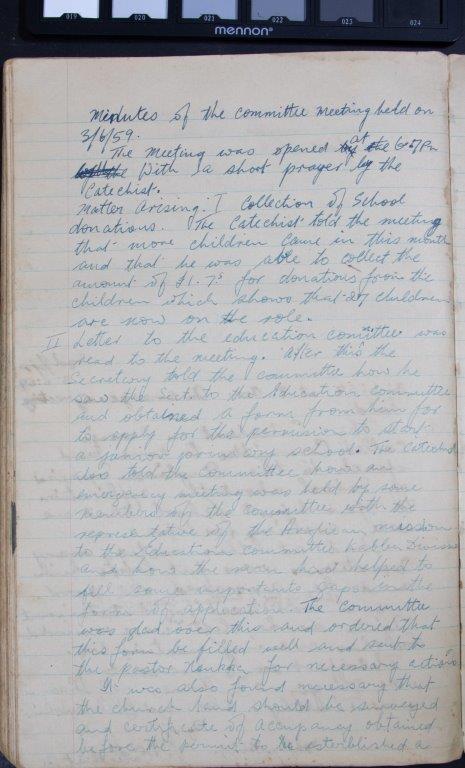 019 020 021 022 023 024
mennon®
Minutes of the committee meeting held on
3/6/59.
The meeting was opened at the 6.07 Pm
With a short prayer by the
Catechist.
Matter Arising. I Collection of School
donations. The Catechist told the meeting
that more children came in this month
and that he was able to collect the
amount of £1.7.s for donations from the
children which shows that 27 children
are now on the role.
II Letter to the education committee was
read to the meeting. After this the
Secretary told the committee how he
saw the Sect. to the Education committee
and obtained a form from him for
to apply for the permission to start
a school. The Catechist
also told the Committee how an
emergency meeting was held by some
members of the committee with the
representative of the Anglican mission
to the Education committee Division
and how the had helped to
fill some importants on the
form of application. The Committee
was glad over this and ordered that
this form be filled well and sent to
the pastor for necessary action.
It was also found necessary that
the church land should be surveyed
and certificate of accupancy obtained
before the permit to be esterblished a